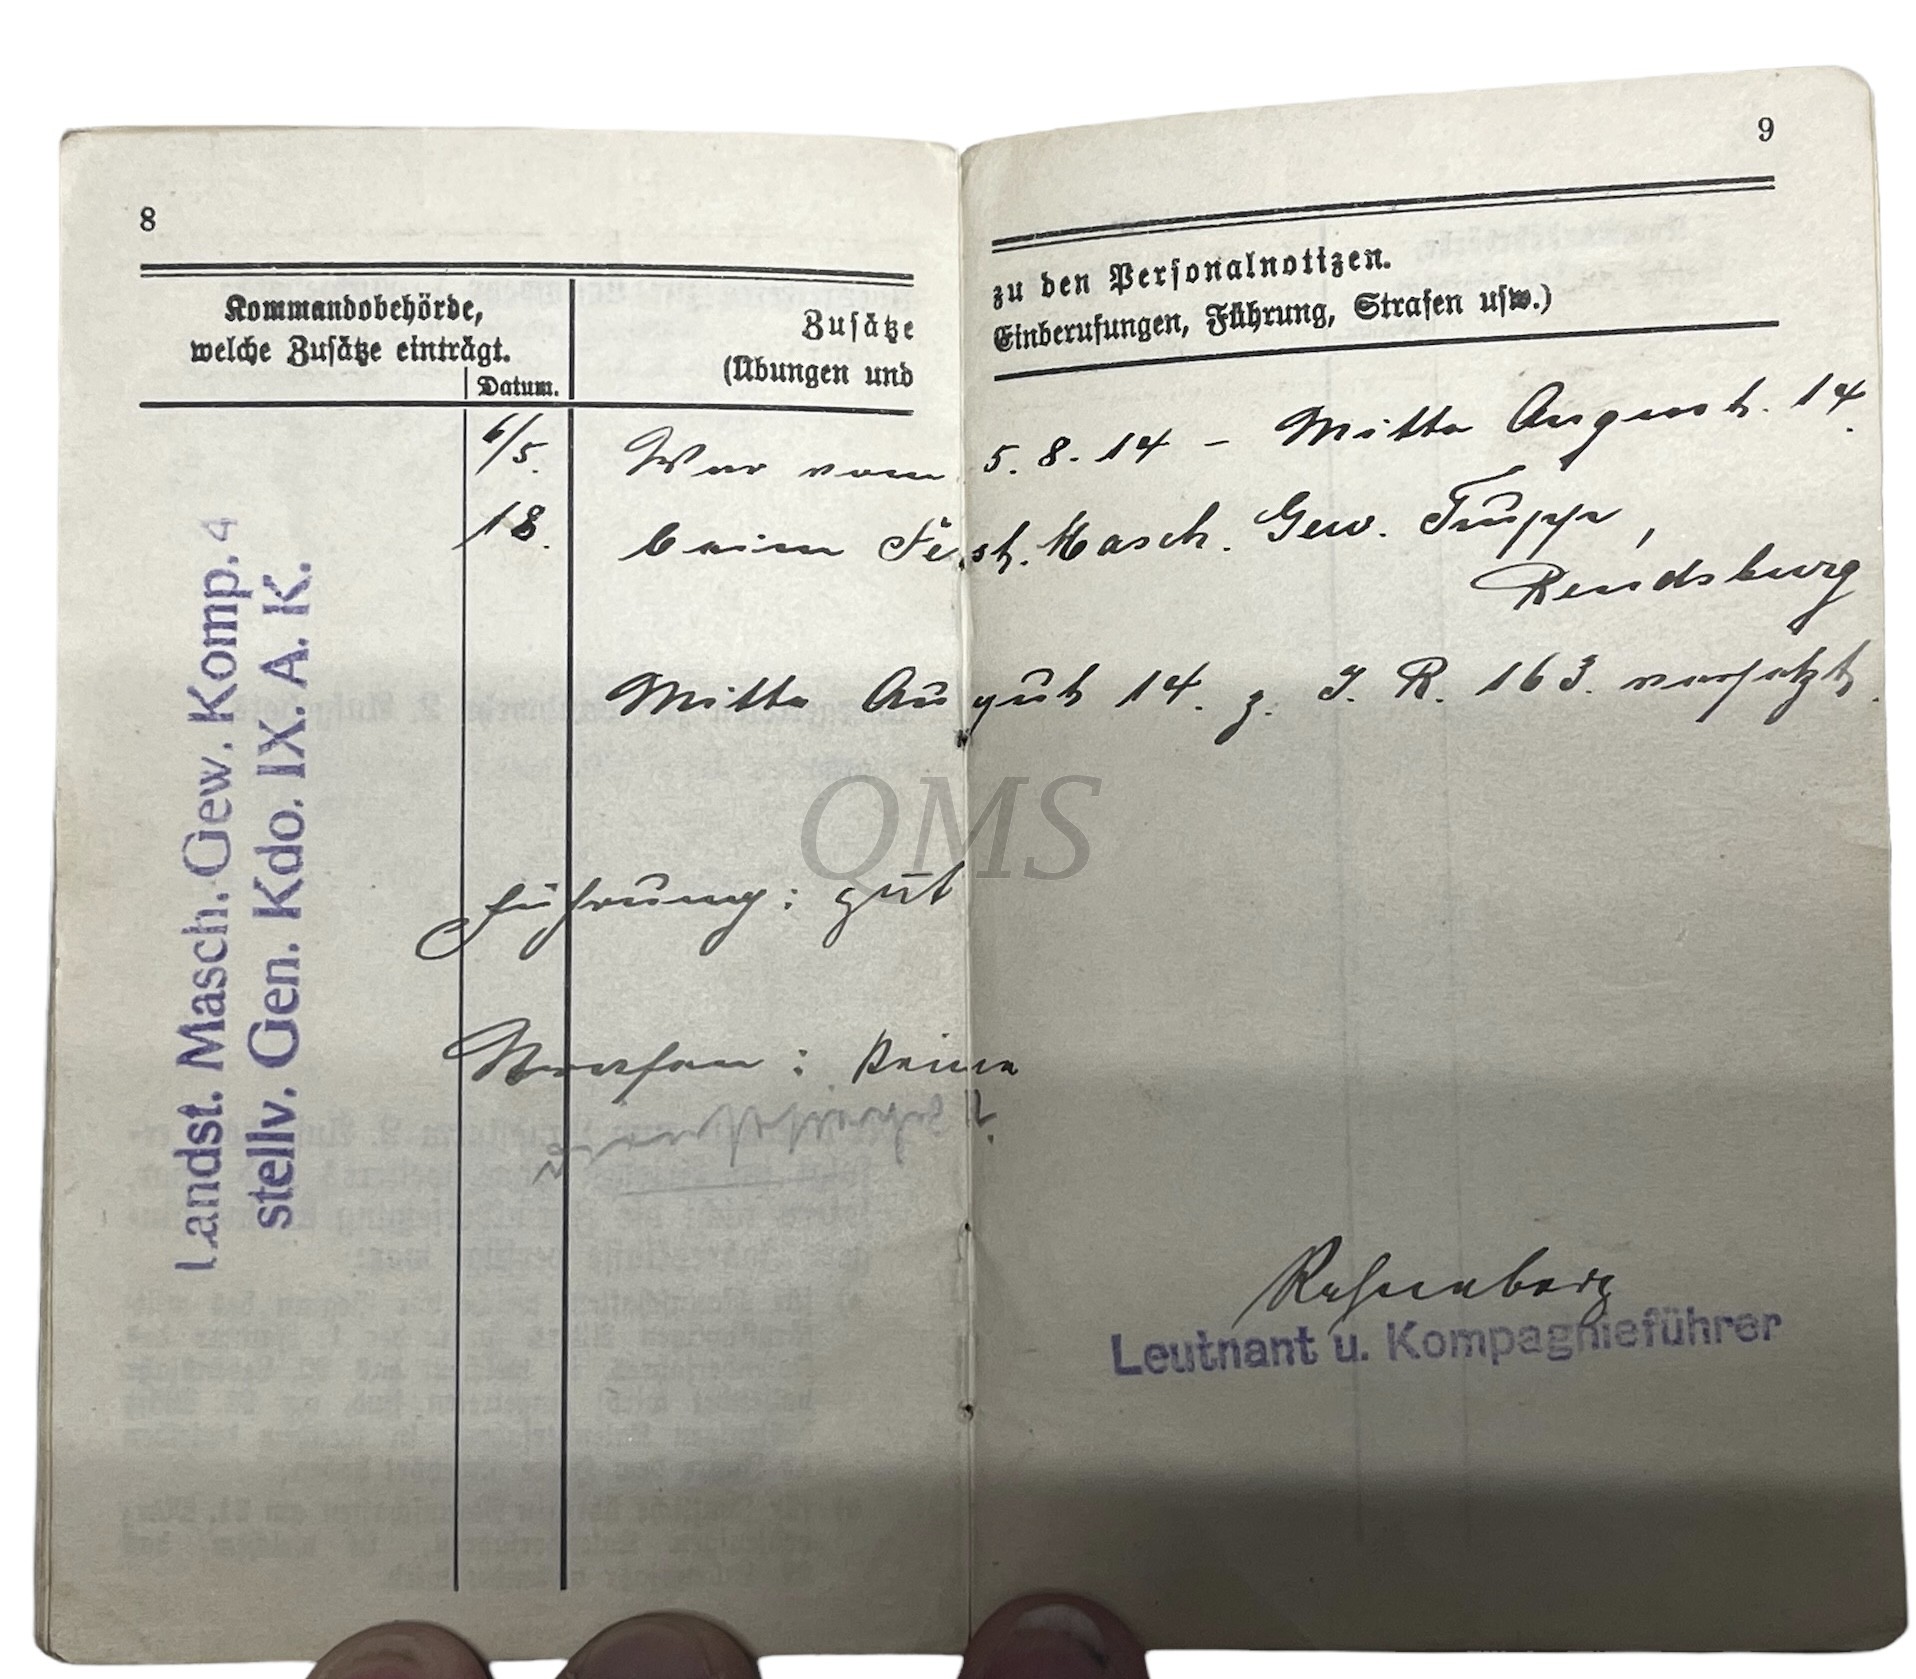 8
Kommandobehörde,
welche Zusätze einträgt.
Datum.
Zusätze
(Übungen und
9
zu den Personalnotizen.
Einberufungen, Führung, Strafen usw.)
Landst. Masch. Gew. Komp. 4
stellv. Gen. Kdo. IX. A. K.
6/5.
18.
War vom 5.8.14 – Mitte August. 14.
beim Fest. Masch. Gew. Trupp,
Rendsburg
Mitte August 14. z. I. R. 163. versetzt.
QMS
Führung: gut
Strafen: keine
Leutnant u. Kompagnieführer